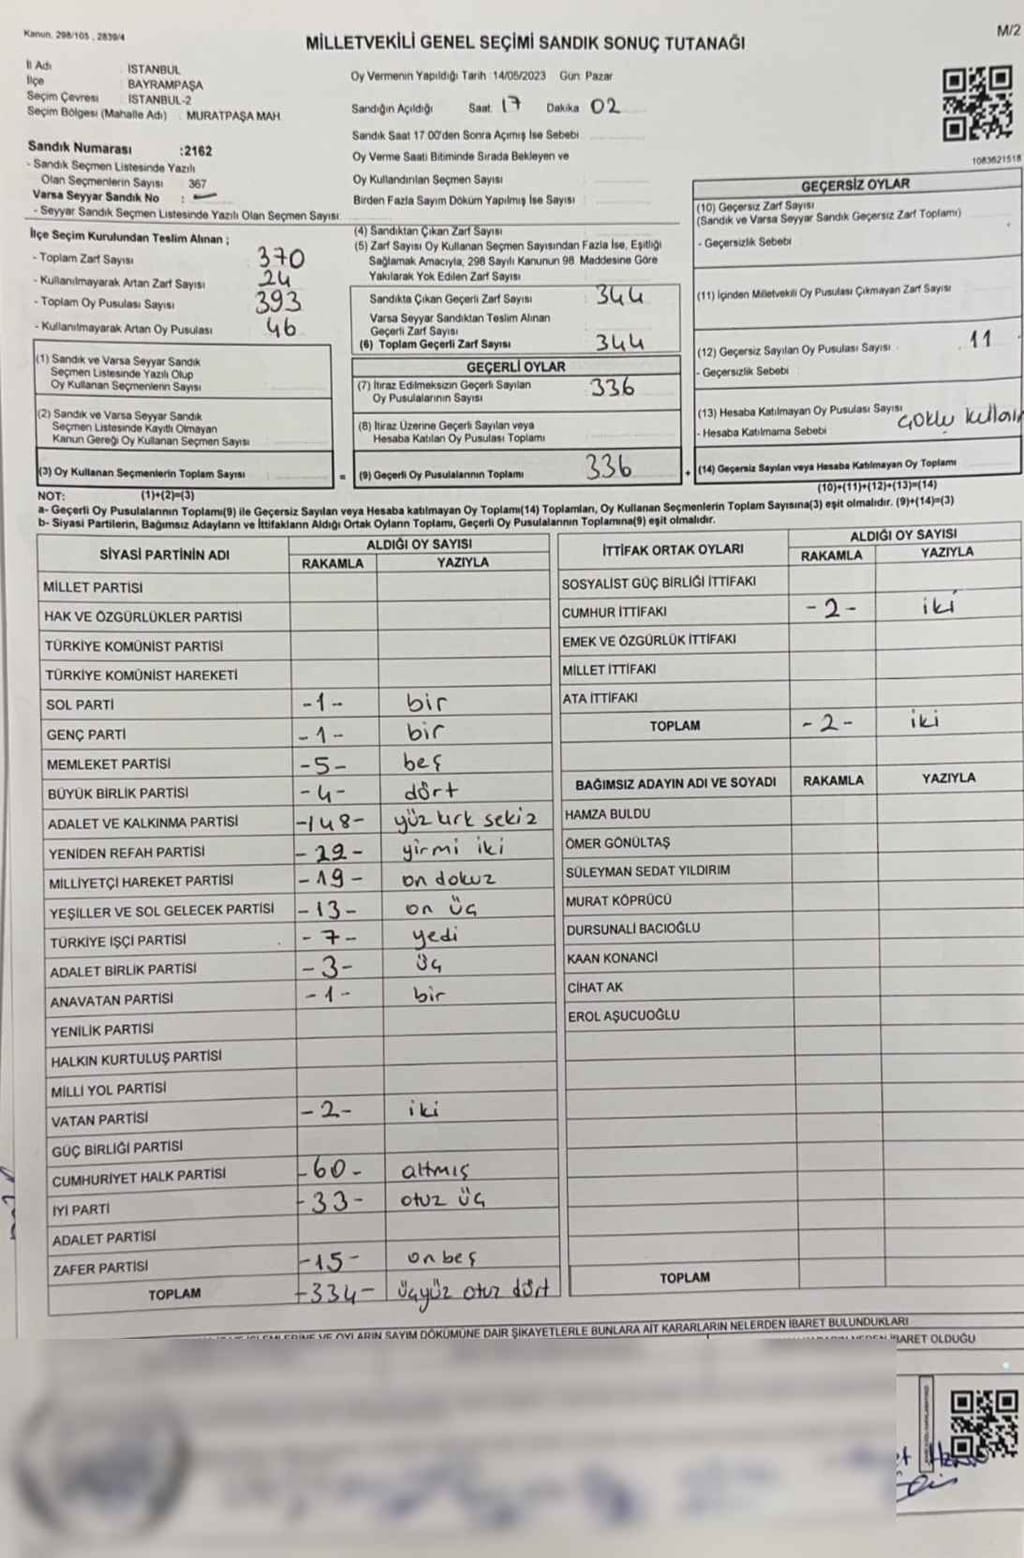 Kanun. 298/105 , 2839/4
M/2
MİLLETVEKİLİ GENEL SEÇİMİ SANDIK SONUÇ TUTANAĞI
İl Adı İSTANBUL
İlçe BAYRAMPAŞA
Seçim Çevresi İSTANBUL-2
Seçim Bölgesi (Mahalle Adı) MURATPAŞA MAH
Sandık Numarası :2162
- Sandık Seçmen Listesinde Yazılı
Olan Seçmenlerin Sayısı 367
Varsa Seyyar Sandık No : -
- Seyyar Sandık Seçmen Listesinde Yazılı Olan Seçmen Sayısı
Oy Vermenin Yapıldığı Tarih 14/05/2023 Gün Pazar
Sandığın Açıldığı Saat 17 Dakika 02
Sandık Saat 17 00'den Sonra Açımış İse Sebebi
Oy Verme Saati Bitiminde Sırada Bekleyen ve
Oy Kullandırılan Seçmen Sayısı
Birden Fazla Sayım Döküm Yapılmış İse Sayısı
1083621518
İlçe Seçim Kurulundan Teslim Alınan ;
- Toplam Zarf Sayısı 370
- Kullanılmayarak Artan Zarf Sayısı 24
- Toplam Oy Pusulası Sayısı 393
- Kullanılmayarak Artan Oy Pusulası 46
(1) Sandık ve Varsa Seyyar Sandık
Seçmen Listesinde Yazılı Olup
Oy Kullanan Seçmenlerin Sayısı
(2) Sandık ve Varsa Seyyar Sandık
Seçmen Listesinde Kayıtlı Olmayan
Kanun Gereği Oy Kullanan Seçmen Sayısı
(3) Oy Kullanan Seçmenlerin Toplam Sayısı =
(4) Sandıktan Çıkan Zarf Sayısı
(5) Zarf Sayısı Oy Kullanan Seçmen Sayısından Fazla İse, Eşitliği
Sağlamak Amacıyla, 298 Sayılı Kanunun 98 Maddesine Göre
Yakılarak Yok Edilen Zarf Sayısı
Sandıkta Çıkan Geçerli Zarf Sayısı 344
Varsa Seyyar Sandıktan Teslim Alınan
Geçerli Zarf Sayısı
(6) Toplam Geçerli Zarf Sayısı 344
GEÇERLİ OYLAR
(7) İtiraz Edilmeksizin Geçerli Sayılan
Oy Pusulalarının Sayısı 336
(8) İtiraz Üzerine Geçerli Sayılan veya
Hesaba Katılan Oy Pusulası Toplamı
(9) Geçerli Oy Pusulalarının Toplamı 336 +
GEÇERSİZ OYLAR
(10) Geçersiz Zarf Sayısı
(Sandık ve Varsa Seyyar Sandık Geçersiz Zarf Toplamı)
- Geçersizlik Sebebi
(11) İçinden Milletvekili Oy Pusulası Çıkmayan Zarf Sayısı
(12) Geçersiz Sayılan Oy Pusulası Sayısı 11
- Geçersizlik Sebebi
(13) Hesaba Katılmayan Oy Pusulası Sayısı
- Hesaba Katılmama Sebebi
(14) Geçersiz Sayılan veya Hesaba Katılmayan Oy Toplamı
NOT: (1)+(2)=(3) (10)+(11)+(12)+(13)=(14)
a- Geçerli Oy Pusulalarının Toplamı(9) ile Geçersiz Sayılan veya Hesaba katılmayan Oy Toplamı(14) Toplamları, Oy Kullanan Seçmenlerin Toplam Sayısına(3) eşit olmalıdır. (9)+(14)=(3)
b- Siyasi Partilerin, Bağımsız Adayların ve İttifakların Aldığı Ortak Oyların Toplamı, Geçerli Oy Pusulalarının Toplamına(9) eşit olmalıdır.
SİYASİ PARTİNİN ADI ALDIĞI OY SAYISI
RAKAMLA YAZIYLA
MİLLET PARTİSİ
HAK VE ÖZGÜRLÜKLER PARTİSİ
TÜRKİYE KOMÜNİST PARTİSİ
TÜRKİYE KOMÜNİST HAREKETİ
SOL PARTİ -1- bir
GENÇ PARTİ -1- bir
MEMLEKET PARTİSİ -5- beş
BÜYÜK BİRLİK PARTİSİ -4- dört
ADALET VE KALKINMA PARTİSİ -148- yüz kırk sekiz
YENİDEN REFAH PARTİSİ -22- yirmi iki
MİLLİYETÇİ HAREKET PARTİSİ -19- on dokuz
YEŞİLLER VE SOL GELECEK PARTİSİ -13- on üç
TÜRKİYE İŞÇİ PARTİSİ -7- yedi
ADALET BİRLİK PARTİSİ -3- üç
ANAVATAN PARTİSİ -1- bir
YENİLİK PARTİSİ
HALKIN KURTULUŞ PARTİSİ
MİLLİ YOL PARTİSİ
VATAN PARTİSİ -2- iki
GÜÇ BİRLİĞİ PARTİSİ
CUMHURİYET HALK PARTİSİ -60- altmış
İYİ PARTİ -33- otuz üç
ADALET PARTİSİ
ZAFER PARTİSİ -15- on beş
TOPLAM -334- üçyüz otuz dört
İTTİFAK ORTAK OYLARI ALDIĞI OY SAYISI
RAKAMLA YAZIYLA
SOSYALİST GÜÇ BİRLİĞİ İTTİFAKI
CUMHUR İTTİFAKI -2- iki
EMEK VE ÖZGÜRLÜK İTTİFAKI
MİLLET İTTİFAKI
ATA İTTİFAKI
TOPLAM -2- iki
BAĞIMSIZ ADAYIN ADI VE SOYADI RAKAMLA YAZIYLA
HAMZA BULDU
ÖMER GÖNÜLTAŞ
SÜLEYMAN SEDAT YILDIRIM
MURAT KÖPRÜCÜ
DURSUNALİ BACIOĞLU
KAAN KONANCİ
CİHAT AK
EROL AŞUCUOĞLU
TOPLAM
VE OYLARIN SAYIM DÖKÜMÜNE DAİR ŞİKAYETLERLE BUNLARA AİT KARARLARIN NELERDEN İBARET BULUNDUKLARI
OLDUĞU